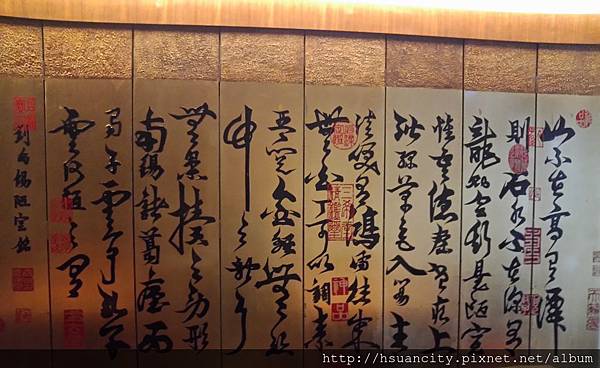 山不在高有仙
則名水不在深有
龍則靈斯是陋室
惟吾德馨苔痕上
階綠草色入簾青
談笑有鴻儒往來
無白丁可以調素
琴閱金經無絲
竹之亂耳
無案牘之勞形
南陽諸葛廬西
蜀子雲亭孔子
云何陋之有
劉禹錫陋室銘
神品
http://hsuancity.pixnet.net/album